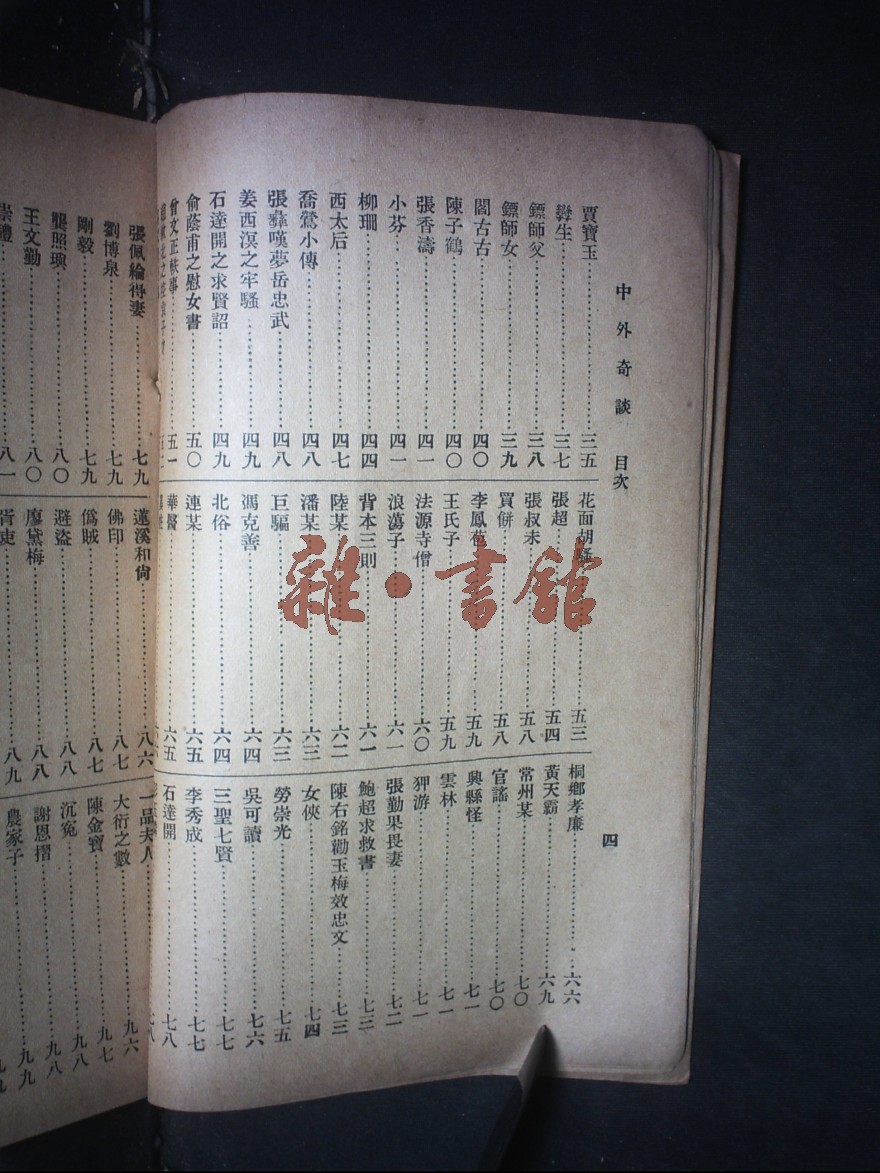 中外奇談 目次
四
賈寶玉 三五
彝生 三七
鏢師父 三八
鏢師女 三九
閻古古 四〇
陳子鶴 四〇
張香濤 四一
小芬 四一
柳珊 四四
西太后 四七
喬鶯小傳 四八
張彝嘆夢岳忠武 四八
姜西溟之牢騷 四九
石達開之求賢詔 四九
俞蔭甫之慰女書 五〇
曾文正軼事 五一
花面胡 五三
張超 五四
張叔未 五八
買餅 五八
李鳳苞 五九
王氏子 五九
法源寺僧 六〇
浪蕩子 六一
背本三則 六一
陸某 六二
潘某 六三
巨騙 六三
馮克善 六四
北俗 六四
連某 六五
華醫 六五
桐鄉孝廉 六六
黃天霸 六九
常州某 七〇
官謠 七〇
興縣怪 七一
雲林 七一
狎游 七一
張勤果畏妻 七二
鮑超求救書 七三
陳右銘勸玉梅效忠文 七三
女俠 七四
勞崇光 七五
吳可讀 七六
三聖七賢 七七
李秀成 七七
石達開 七八
張佩綸得妻 七九
劉博泉 七九
剛毅 七九
龔照璵 八〇
王文勤 八〇
崇禮 八一
蓮溪和尙 八六
佛印 八七
僞賊 八七
避盜 八八
廖黛梅 八八
胥吏 八九
一品夫人
大衍之數 九六
陳金寶 九七
沉寃 九八
謝恩摺 九八
農家子 九九
雜·書館